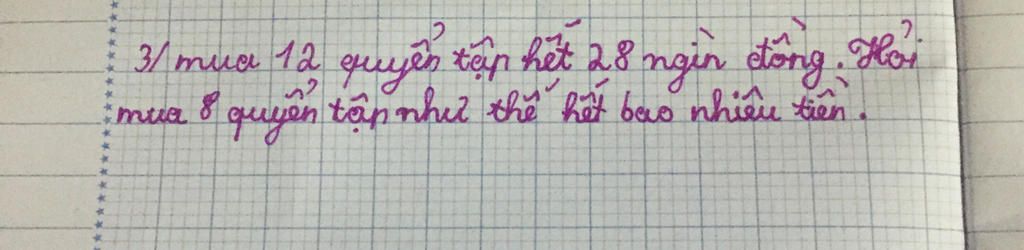 3/ mua 12 quyển tập hết 28 ngìn đồng. Hỏi
mua 8 quyển tập như thế hết bao nhiêu tiền.